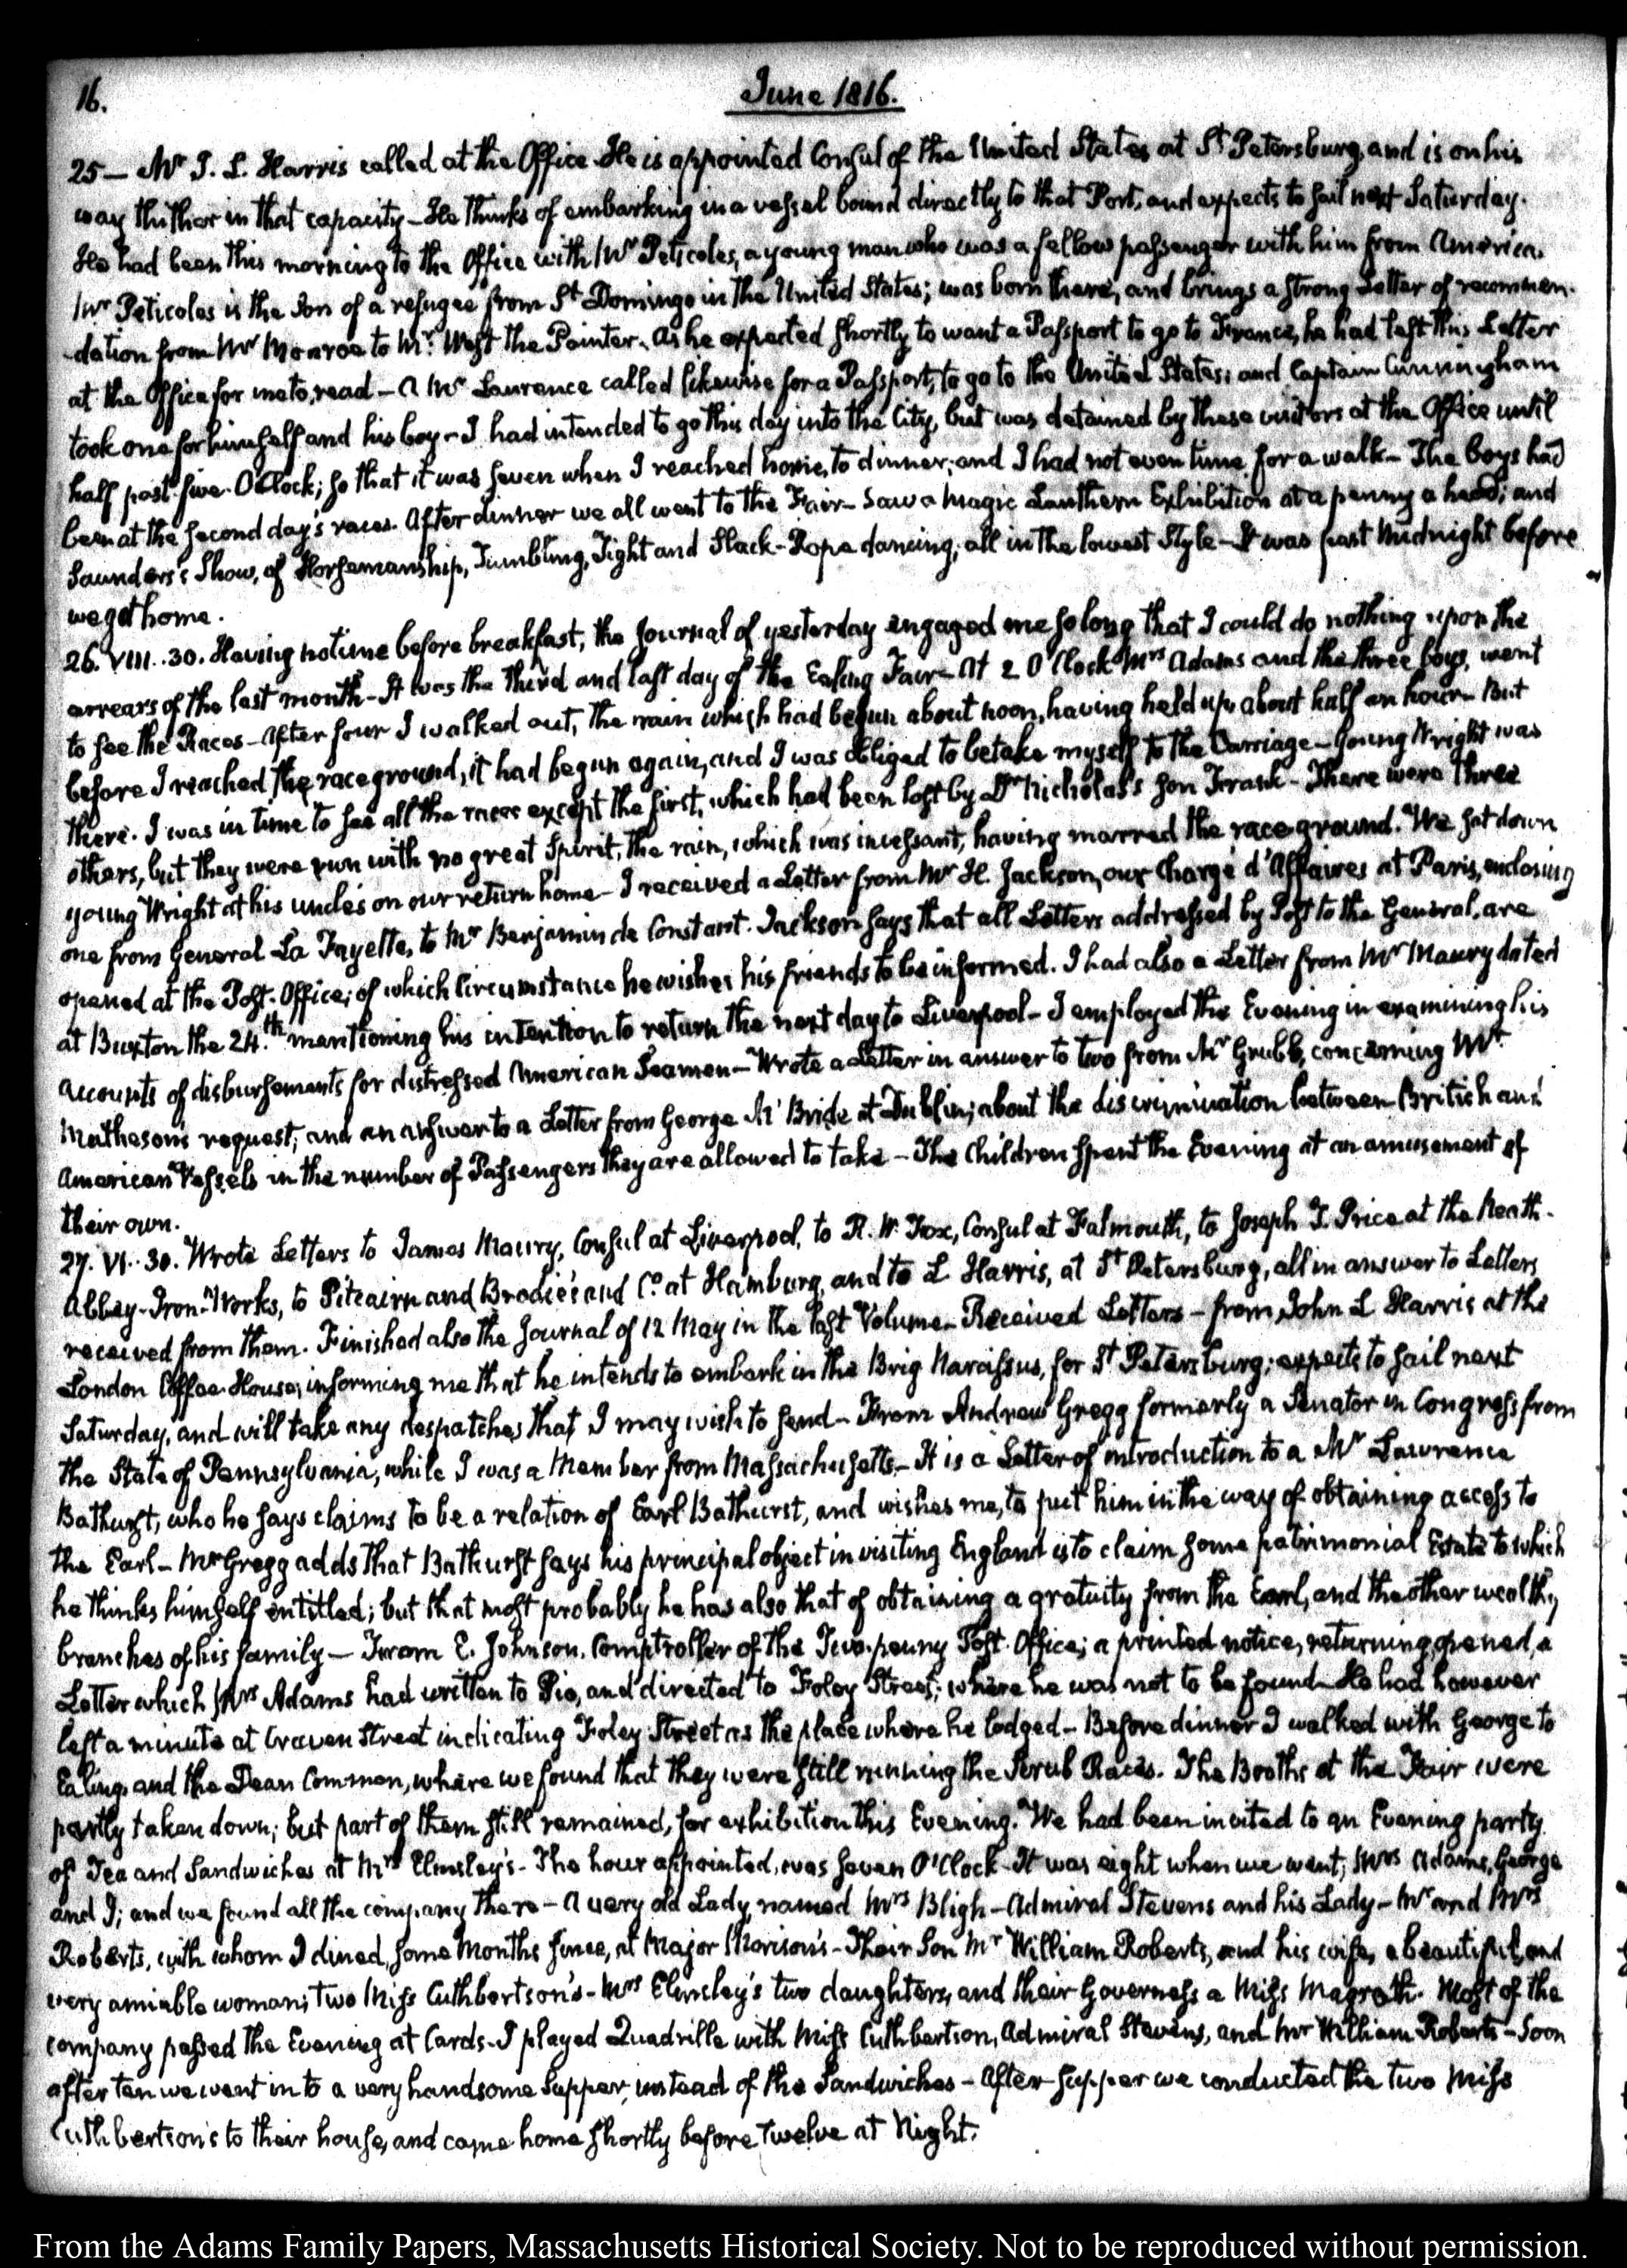 16.
June 1816.
25— Mr J. L. Harris called at the Office. He is appointed Consul of the United States at St Petersburg, and is on his
way thither in that capacity— He thinks of embarking in a vessel bound directly to that Port, and expects to sail next Saturday.
He had been this morning to the Office with Mr Peticolas, a young man who was a fellow passenger with him from America.
Mr Peticolas is the Son of a refugee from St Domingo in the United States; was born there, and brings a strong Letter of recommen-
-dation from Mr Monroe to Mr. West the Painter. As he expected shortly to want a Passport to go to France, he had left this Letter
at the Office for me to read— A Mr Laurence called likewise for a Passport, to go to the United States; and Captain Cunningham
took one for himself and his boy— I had intended to go this day into the City, but was detained by these visitors at the Office until
half past five O'Clock; so that it was seven when I reached home, to dinner; and I had not even time for a walk— The boys had
been at the second day's races. After dinner we all went to the Fair— Saw a Magic Lanthern Exhibition at a penny a head; and
Saunders's Show, of Horsemanship, Tumbling, Tight and Slack-Rope dancing; all in the lowest Style— It was past Midnight before
we got home.
26. VIII..30. Having no time before breakfast, the Journal of yesterday engaged me so long that I could do nothing upon the
arrears of the last month— It was the third and last day of the Ealing Fair— At 2 O'Clock Mrs Adams and the three boys, went
to see the Races— After four I walked out, the rain which had begun about noon, having held up about half an hour— But
before I reached the race ground, it had begun again, and I was obliged to betake myself to the Carriage— Young Wright was
there. I was in time to see all the races except the first, which had been lost by Dr Nicholas's Son Frank— There were three
others, but they were run with no great Spirit, the rain, which was incessant, having marred the race ground. We set down
young Wright at his uncle's on our return home— I received a Letter from Mr H. Jackson, our Chargé d'Affaires at Paris, enclosing
one from General La Fayette, to Mr Benjamin de Constant. Jackson says that all Letters addressed by Post to the General, are
opened at the Post-Office; of which Circumstance he wishes his friends to be informed. I had also a Letter from Mr Maury dated
at Buxton the 24.th mentioning his intention to return the next day to Liverpool— I employed the Evening in examining his
accounts of disbursements for distressed American Seamen— Wrote a Letter in answer to two from Mr Grubb, concerning Mr
Matheson's request; and an answer to a Letter from George Mc Bride at Dublin; about the discrimination between British and
American Vessels in the number of Passengers they are allowed to take— The Children spent the Evening at an amusement of
their own.
27. VI..30. Wrote Letters to James Maury, Consul at Liverpool, to R. W. Fox, Consul at Falmouth, to Joseph T. Price at the Neath-
Abbey-Iron-Works, to Pitcairn and Brodie's and Co. at Hamburg, and to L. Harris, at St Petersburg, all in answer to Letters
received from them. Finished also the Journal of 12 May in the last Volume— Received Letters— from John L Harris at the
London Coffee-House, informing me that he intends to embark in the Brig Narcissus, for St Petersburg; expects to sail next
Saturday, and will take any despatches that I may wish to send— From Andrew Gregg formerly a Senator in Congress from
the State of Pennsylvania, while I was a Member from Massachusetts— It is a Letter of introduction to a Mr Lawrence
Bathurst, who he says claims to be a relation of Earl Bathurst, and wishes me, to put him in the way of obtaining access to
the Earl— Mr Gregg adds that Bathurst says his principal object in visiting England is to claim some patrimonial Estate to which
he thinks himself entitled; but that most probably he has also that of obtaining a gratuity from the Earl, and the other wealthy
branches of his family— From E. Johnson. Comptroller of the Two-penny Post-Office; a printed notice, returning, opened, a
Letter which Mrs Adams had written to Pio, and directed to Foley Street; where he was not to be found— He had however
left a minute at Craven Street indicating Foley Street as the place where he lodged— Before dinner I walked with George to
Ealing, and the Dean Common, where we found that they were still running the Scrub Races. The Booths at the Fair were
partly taken down; but part of them still remained, for exhibition this Evening. We had been invited to an Evening party
of Tea and Sandwiches at Mrs Elmsley's— The hour appointed, was seven O'Clock— It was eight when we went; Mrs Adams, George
and I; and we found all the company there— A very old Lady, named Mrs Bligh— Admiral Stevens and his Lady— Mr and Mrs
Roberts, with whom I dined, some Months since, at Major Morison's— Their Son Mr William Roberts, and his wife, a beautiful, and
very amiable woman; two Miss Cuthbertson's— Mrs Elmsley's two daughters, and their Governess a Miss Magrath. Most of the
company passed the Evening at Cards— I played Quadrille with Miss Cuthbertson, Admiral Stevens, and Mr William Roberts— Soon
after ten we went in to a very handsome Supper, instead of the Sandwiches— After supper we conducted the two Miss
Cuthbertson's to their house, and came home shortly before twelve at Night.
From the Adams Family Papers, Massachusetts Historical Society. Not to be reproduced without permission.